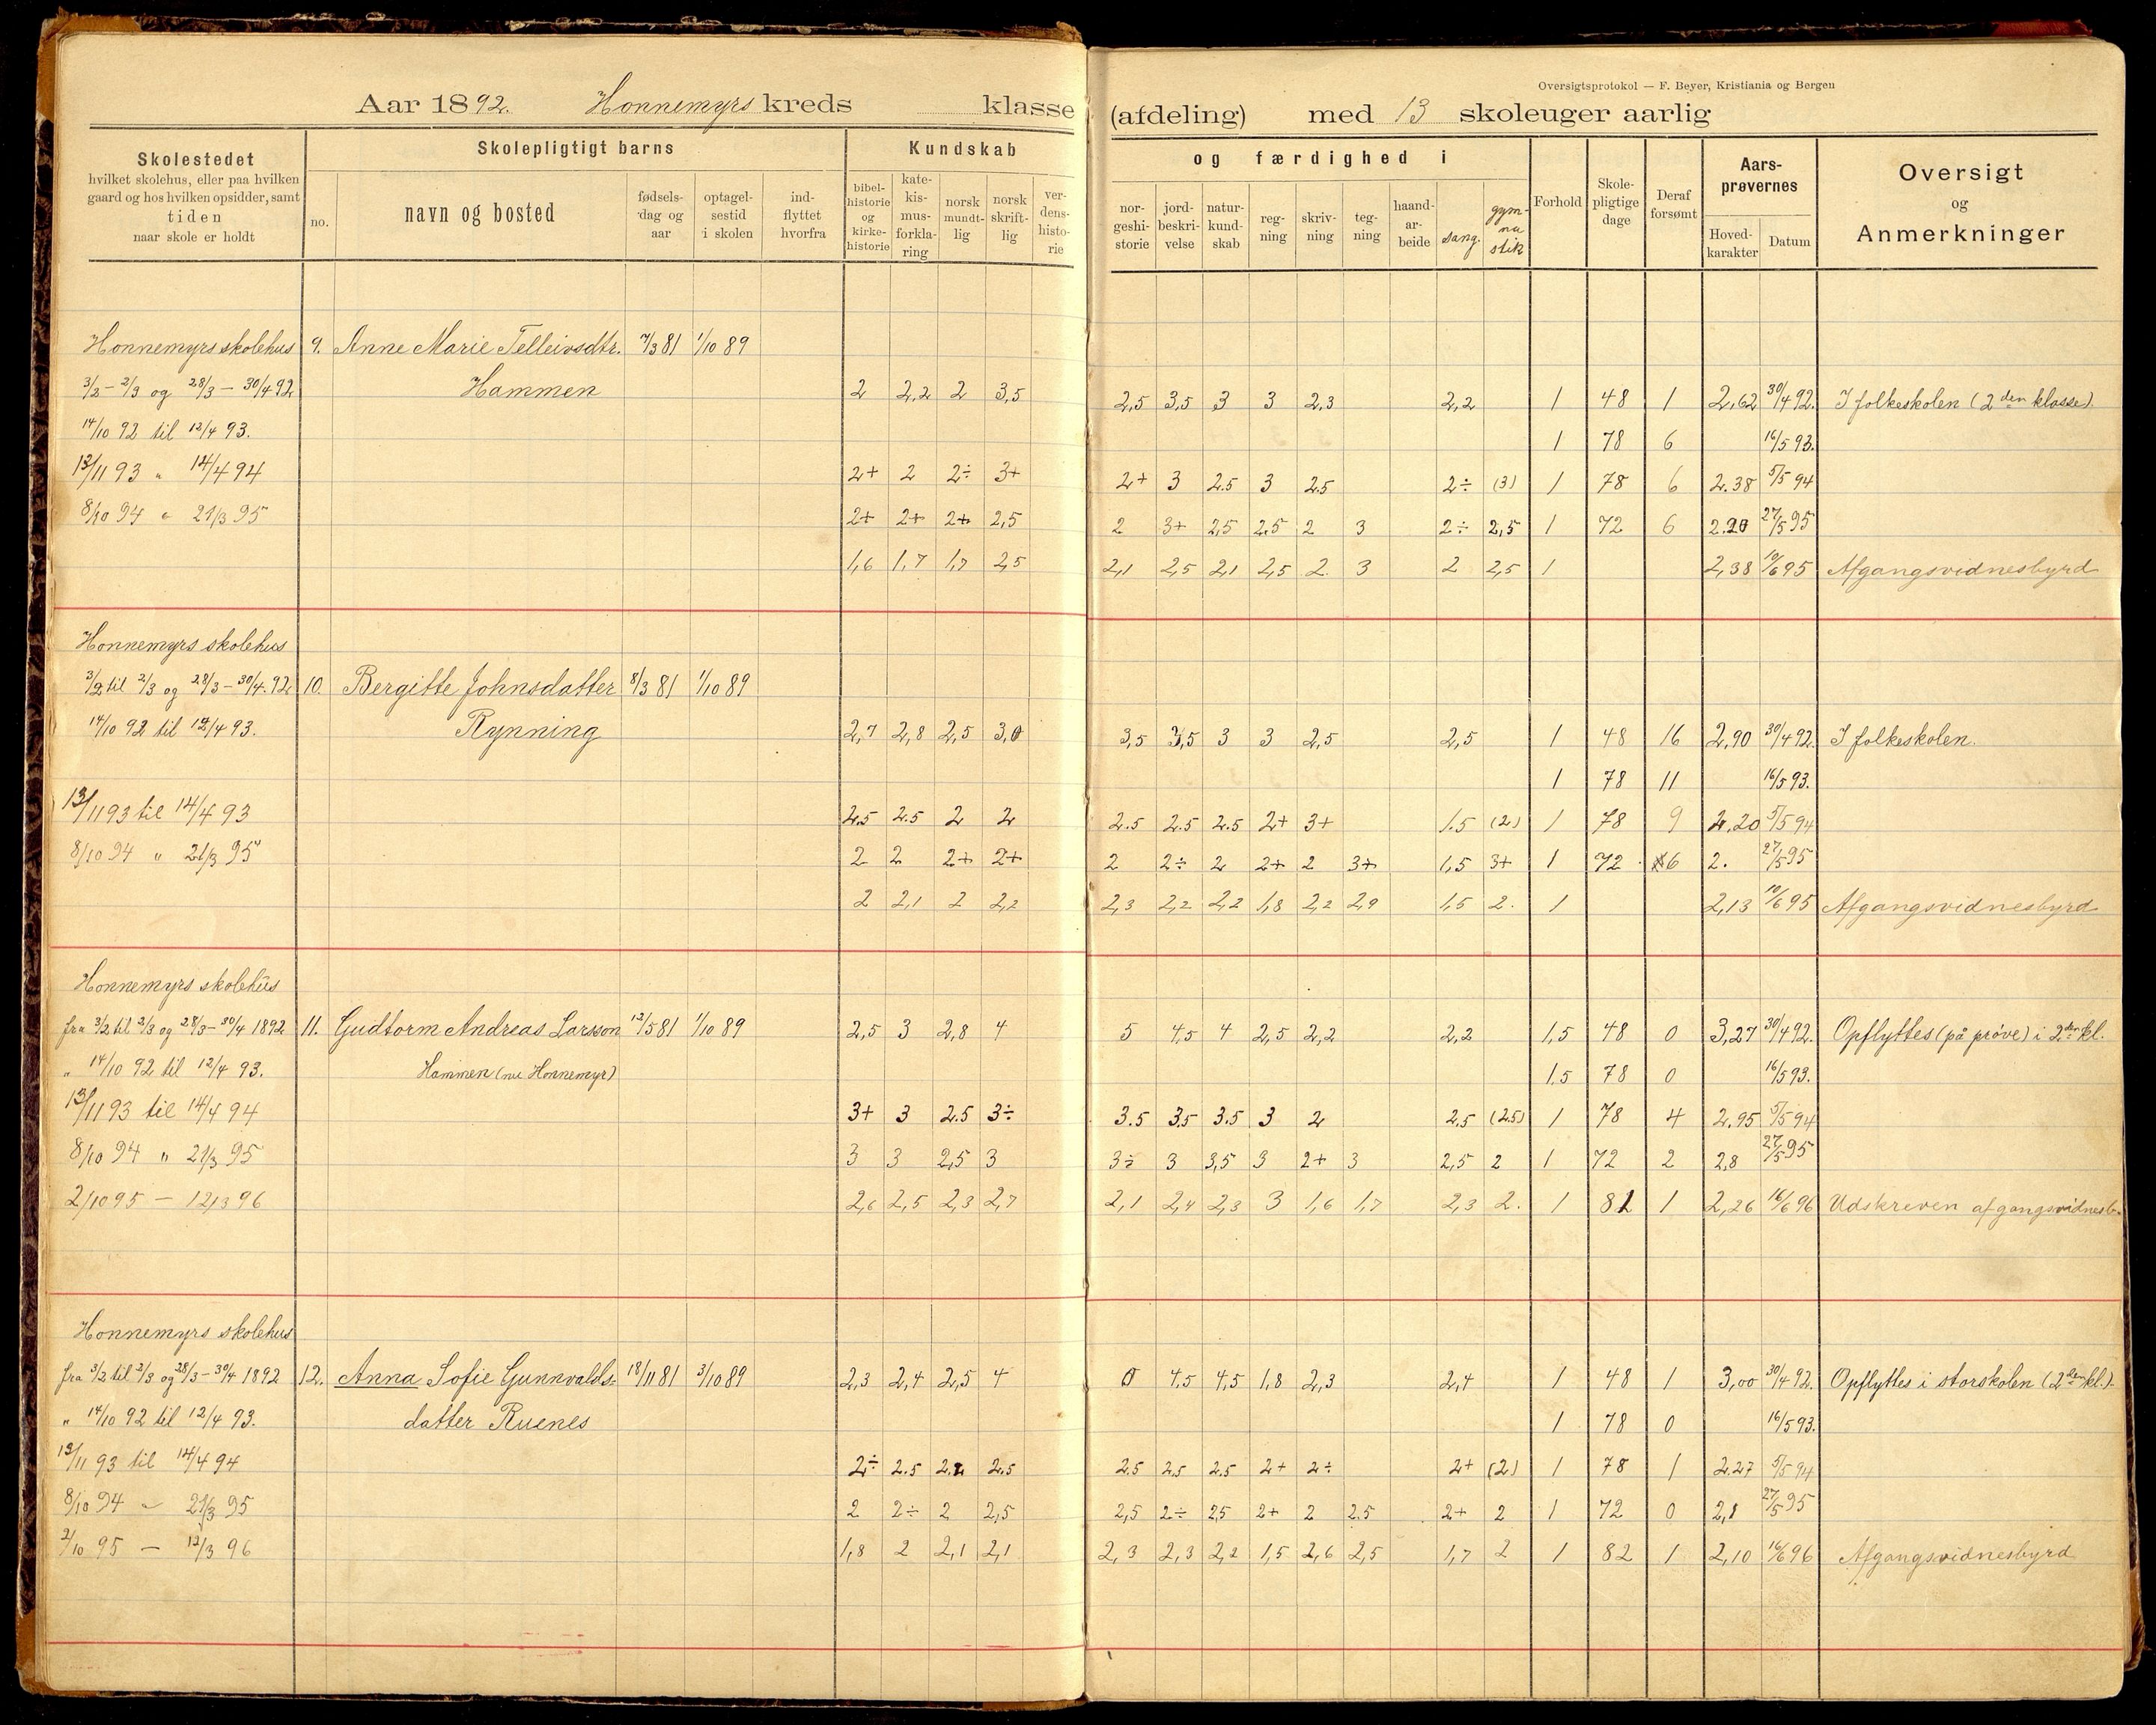 Oversigtsprotokol — F. Beyer, Kristiania og Bergen
Aar 1892. Honnemyrs kreds klasse (afdeling) med 13 skoleuger aarlig
Skolestedet
hvilket skolehus, eller paa hvilken
gaard og hos hvilken opsidder, samt
tiden
naar skole er holdt
Skolepligtigt barns
no.
navn og bosted
fødsels-
dag og
aar
optagel-
sestid
i skolen
ind-
flyttet
hvorfra
Kundskab og færdighed i
bibel-
historie
og
kirke-
historie
kate-
kis-
mus-
forkla-
ring
norsk
mundt-
lig
norsk
skrift-
lig
ver-
dens-
histo-
rie
nor-
geshi-
storie
jord-
beskri-
velse
natur-
kund-
skab
reg-
ning
skriv-
ning
teg-
ning
haand-
ar-
beide
sang.
gym-
na
stik
Forhold
Skole-
pligtige
dage
Deraf
forsømt
Aars-
prøvernes
Hoved-
karakter
Datum
Oversigt
og
Anmerkninger
Honnemyrs skolehus 9. Anne Marie Telleivsdtr. 7/3 81 1/10 89
3/2 – 2/3 og 28/3 – 30/4 92 Hammen 2 2,2 2 3,5 2,5 3,5 3 3 2,3 2,2 1 48 1 2,62 30/4 92. I folkeskolen (2den klasse).
14/10 92 til 12/4 93. 1 78 6 16/5 93.
13/11 93 " 14/4 94 2+ 2 2÷ 3+ 2+ 3 2.5 3 2.5 2÷ (3) 1 78 6 2.38 5/5 94
8/10 94 " 21/3 95 2+ 2+ 2+ 2,5 2 3+ 2,5 2,5 2 3 2÷ 2,5 1 72 6 2.20 27/5 95
1,6 1,7 1,7 2,5 2,1 2,5 2,1 2,5 2. 3 2 2,5 1 2,38 10/6 95 Afgangsvidnesbyrd
Honnemyrs skolehus
3/2 til 2/3 og 28/3 – 30/4. 92 10. Bergitte Johnsdatter 8/3 81 1/10 89
14/10 92 til 12/4 93. Rynning 2,7 2,8 2,5 3,0 3,5 3,5 3 3 2,5 2,5 1 48 16 2,90 30/4 92. I folkeskolen.
1 78 11 16/5 93.
13/11 93 til 14/4 93 2.5 2.5 2 2 2.5 2.5 2.5 2+ 3+ 1.5 (2) 1 78 9 2,20 5/5 94
8/10 94 " 21/3 95 2 2 2+ 2+ 2 2÷ 2 2+ 2 3+ 1,5 3+ 1 72 6 2. 27/5 95
2 2,1 2 2,2 2,3 2,2 2,2 1,8 2,2 2,9 1,5 2. 1 2,13 10/6 95 Afgangsvidnesbyrd
Honnemyrs skolehus
fra 3/2 til 2/3 og 28/3 – 30/4 1892 11. Gudtorm Andreas Larsson 12/5 81 1/10 89 2,5 3 2,8 4 5 4,5 4 2,5 2,2 2,2 1,5 48 0 3,27 30/4 92. Opflyttes (på prøve) i 2den kl.
" 14/10 92 til 12/4 93. Hammen (nu Honnemyr) 1,5 78 0 16/5 93.
13/11 93 til 14/4 94 3+ 3 2.5 3÷ 3.5 3.5 3.5 3 2 2.5 (2.5) 1 78 4 2.95 5/5 94
8/10 94 " 21/3 95 3 3 2,5 3 3÷ 3 3,5 3 2+ 3 2,5 2 1 72 2 2,8 27/5 95
2/10 95 — 12/3 96 2,6 2,5 2,3 2,7 2,1 2,4 2,3 3 1,6 1,7 2,3 2. 1 81 1 2,26 16/6 96 Udskreven afgangsvidnesb.
Honnemyrs skolehus
fra 3/2 til 2/3 og 28/3 – 30/4 1892 12. Anna Sofie Gunnvalds- 18/11 81 3/10 89 2,3 2,4 2,5 4 0 4,5 4,5 1,8 2,3 2,4 1 48 1 3,00 30/4 92. Opflyttes i storskolen (2den kl.).
" 14/10 92 til 12/4 93. datter Ruenes 1 78 0 16/5 93.
13/11 93 til 14/4 94 2÷ 2.5 2.2 2.5 2.5 2.5 2.5 2+ 2÷ 2+ (2) 1 78 1 2.27 5/5 94
8/10 94 " 21/3 95 2 2÷ 2 2,5 2,5 2÷ 2,5 2+ 2 2.5 2+ 2 1 72 0 2,1 27/5 95
2/10 95 — 12/3 96 1,8 2 2,1 2,1 2,3 2,3 2,2 1,5 2,6 2,5 1,7 2 1 82 1 2,10 16/6 96 Afgangsvidnesbyrd